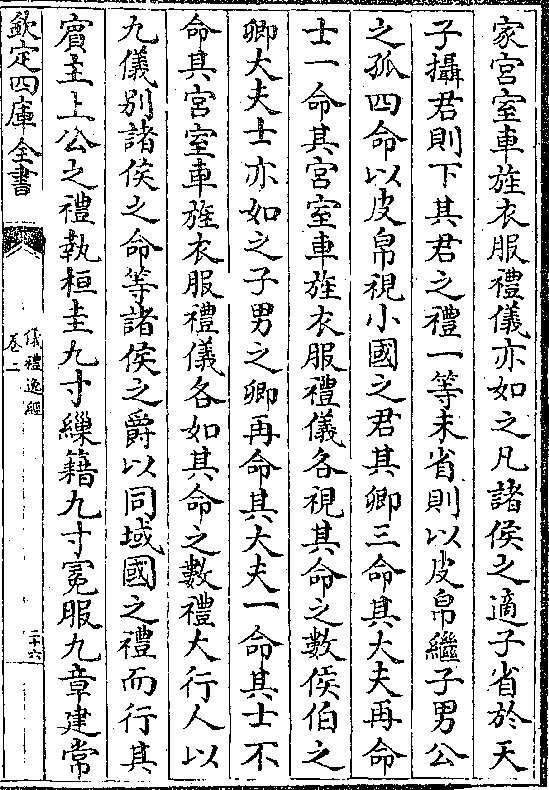 家宫室車旌衣服禮儀亦如之凡諸侯之適子省於天
子攝君則下其君之禮一等未省則以皮帛繼子男公
之孤四命以皮帛視小國之君其卿三命其大夫再命
士一命其宫室車旌衣服禮儀各視其命之數侯伯之
卿大夫士亦如之子男之卿再命其大夫一命其士不
命其宫室車旌衣服禮儀各如其命之數禮大行人以
九儀别諸侯之命等諸侯之爵以同域國之禮而行其
賓主上公之禮執桓圭九寸繅籍九寸冕服九章建常
欽定四庫全書
儀禮逸經
卷二
二十六